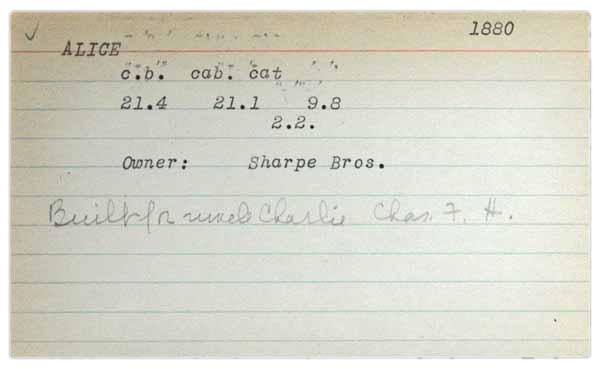 1880
ALICE
c.b. cab. cat
21.4 21.1 9.8
2.2.
Owner: Sharpe Bros.
Built for uncle Charlie Chas. F. H.